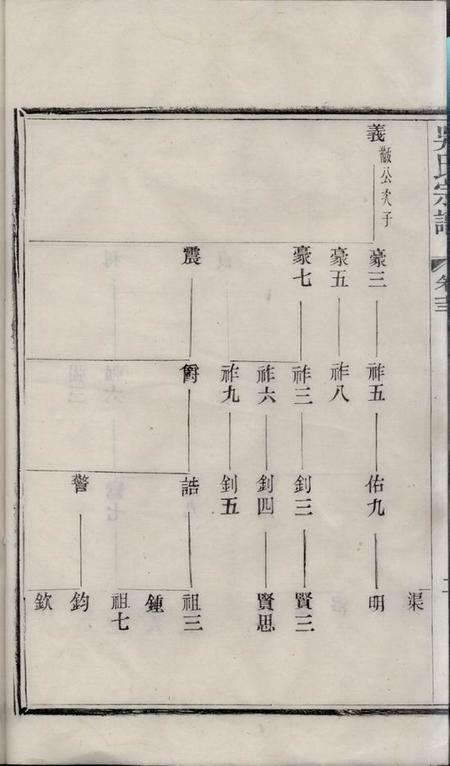 吳氏宗譜
卷三
義 黻公次子
豪三
豪五
豪七
震
祚五
祚八
祚三
祚六
祚九
爵
佑九
釗三
釗四
釗五
誥
警
渠
明
賢三
賢思
祖三
鍾
祖七
鈞
欽